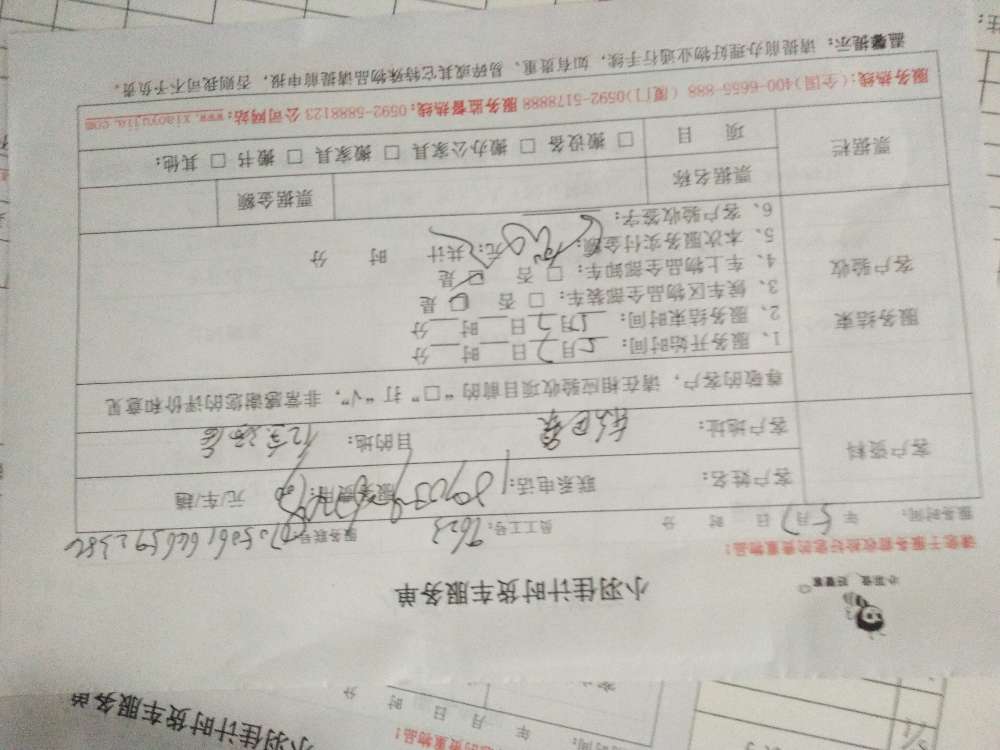 小羽佳 好管家
小羽佳计时货车服务单
请您于服务前收拾好您的贵重物品!
服务时间: 年 5月7日 时 分 员工工号: 7623 服务联号:
客户资料
客户姓名: 联系电话: 服务费用: 元/车/趟
客户地址: 目的地:
尊敬的客户,请在相应验收项目前的“□”打“√”,非常感谢您的评价和意见
服务结束
客户验收
1、服务开始时间: 5月7日 时 分
2、服务结束时间: 5月7日 时 分
3、候车区物品全部装车: □ 否 □ 是
4、车上物品全部卸车: □ 否 □ 是
5、本次服务实付金额: 元;共计 时 分
6、客户验收签字:
票据栏
票据名称 票据金额
项 目 □ 搬设备 □ 搬办公家具 □ 搬家具 □ 搬书 □ 其他:
服务热线:(全国)400-6655-888 (厦门)0592-5178888 服务监督热线:0592-5888123 公司网站:www.xiaoyujia.com
温馨提示: 请提前办理好物业通行手续,如有贵重、易碎或其它特殊物品请提前申报,否则我司不予负责。
小羽佳计时货车服务单
的贵重物品!
时间: 年 月 日 时 分